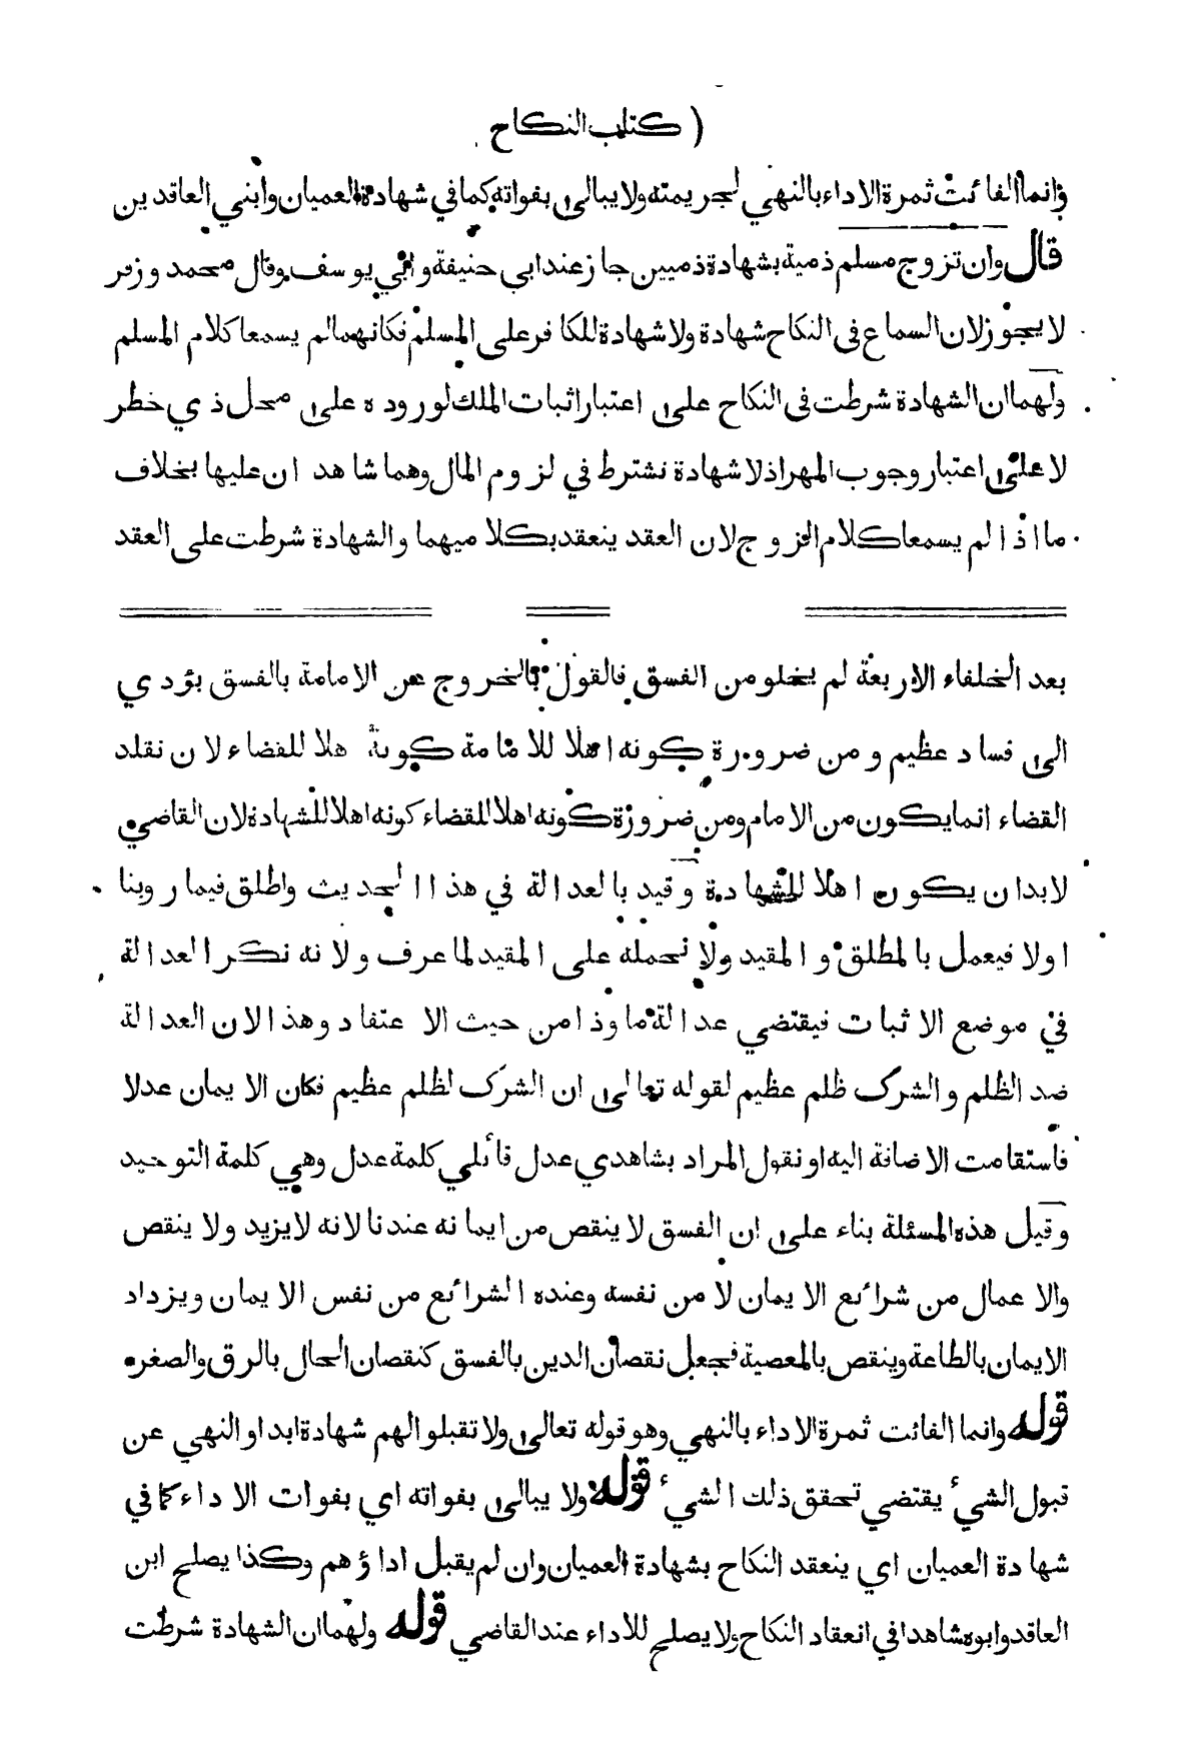 ( كتاب النكاح
وانما الفائت ثمرة الاداء بالنهي لجريمته ولا يبالى بفواته كما في شهادة العميان وابني العاقدين
قال وان تزوج مسلم ذمية بشهادة ذميين جاز عند ابي حنيفة وابي يوسف وقال محمد وزفر
لا يجوز لان السماع فى النكاح شهادة ولا شهادة للكافر على المسلم فكانهما لم يسمعا كلام المسلم
ولهما ان الشهادة شرطت فى النكاح على اعتبار اثبات الملك لوروده على محل ذي خطر
لا على اعتبار وجوب المهر اذ لا شهادة تشترط في لزوم المال وهما شاهدان عليها بخلاف
ما اذا لم يسمعا كلام الزوج لان العقد ينعقد بكلاميهما والشهادة شرطت على العقد
بعد الخلفاء الاربعة لم يخلو من الفسق فالقول بالخروج عن الامامة بالفسق يؤدي
الى فساد عظيم ومن ضرورة كونه اهلا للامامة كونه هلا للقضاء لان نقلد
القضاء انما يكون من الامام ومن ضرورة كونه اهلا للقضاء كونه اهلا للشهادة لان القاضي
لابد ان يكون اهلا للشهادة وقيد بالعدالة في هذا الحديث واطلق فيما روينا
اولا فيعمل بالمطلق والمقيد ولا نحمله على المقيد لما عرف ولانه نكر العدالة
في موضع الاثبات فيقتضي عدالة ما وذا من حيث الاعتقاد وهذا لان العدالة
ضد الظلم والشرك ظلم عظيم لقوله تعالى ان الشرك لظلم عظيم فكان الايمان عدلا
فاستقامت الاضافة اليه او نقول المراد بشاهدي عدل قائلي كلمة عدل وهي كلمة التوحيد
وقيل هذه المسئلة بناء على ان الفسق لا ينقص من ايمانه عندنا لانه لا يزيد ولا ينقص
والاعمال من شرائع الايمان لا من نفسه وعنده الشرائع من نفس الايمان ويزداد
الايمان بالطاعة وينقص بالمعصية فجعل نقصان الدين بالفسق كنقصان الحال بالرق والصغر
قوله وانما الفائت ثمرة الاداء بالنهي وهو قوله تعالى ولا تقبلوا لهم شهادة ابدا والنهي عن
قبول الشيء يقتضي تحقق ذلك الشيء قوله ولا يبالى بفواته اي بفوات الاداء كما في
شهادة العميان اي ينعقد النكاح بشهادة العميان وان لم يقبل اداؤهم وكذا يصلح ابن
العاقد وابوه شاهدا في انعقاد النكاح ولا يصلح للاداء عند القاضي قوله ولهما ان الشهادة شرطت